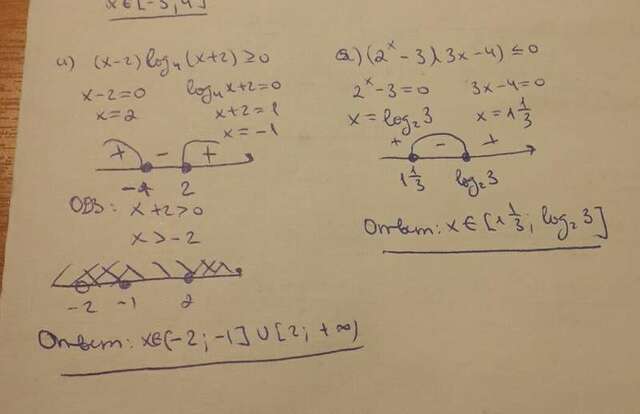 x∈[-3; 4]
и) (x-2)log₄(x+2) ≥ 0
x-2=0 log₄x+2=0
x=2 x+2=1
x=-1
+ - +
-1 2
ОДЗ: x+2>0
x>-2
-2 -1 2
Ответ: x∈(-2; -1] ∪ [2; +∞)
а) (2ˣ-3)(3x-4) ≤ 0
2ˣ-3=0 3x-4=0
x=log₂3 x=1 1/3
+ - +
1 1/3 log₂3
Ответ: x∈[1 1/3; log₂3]